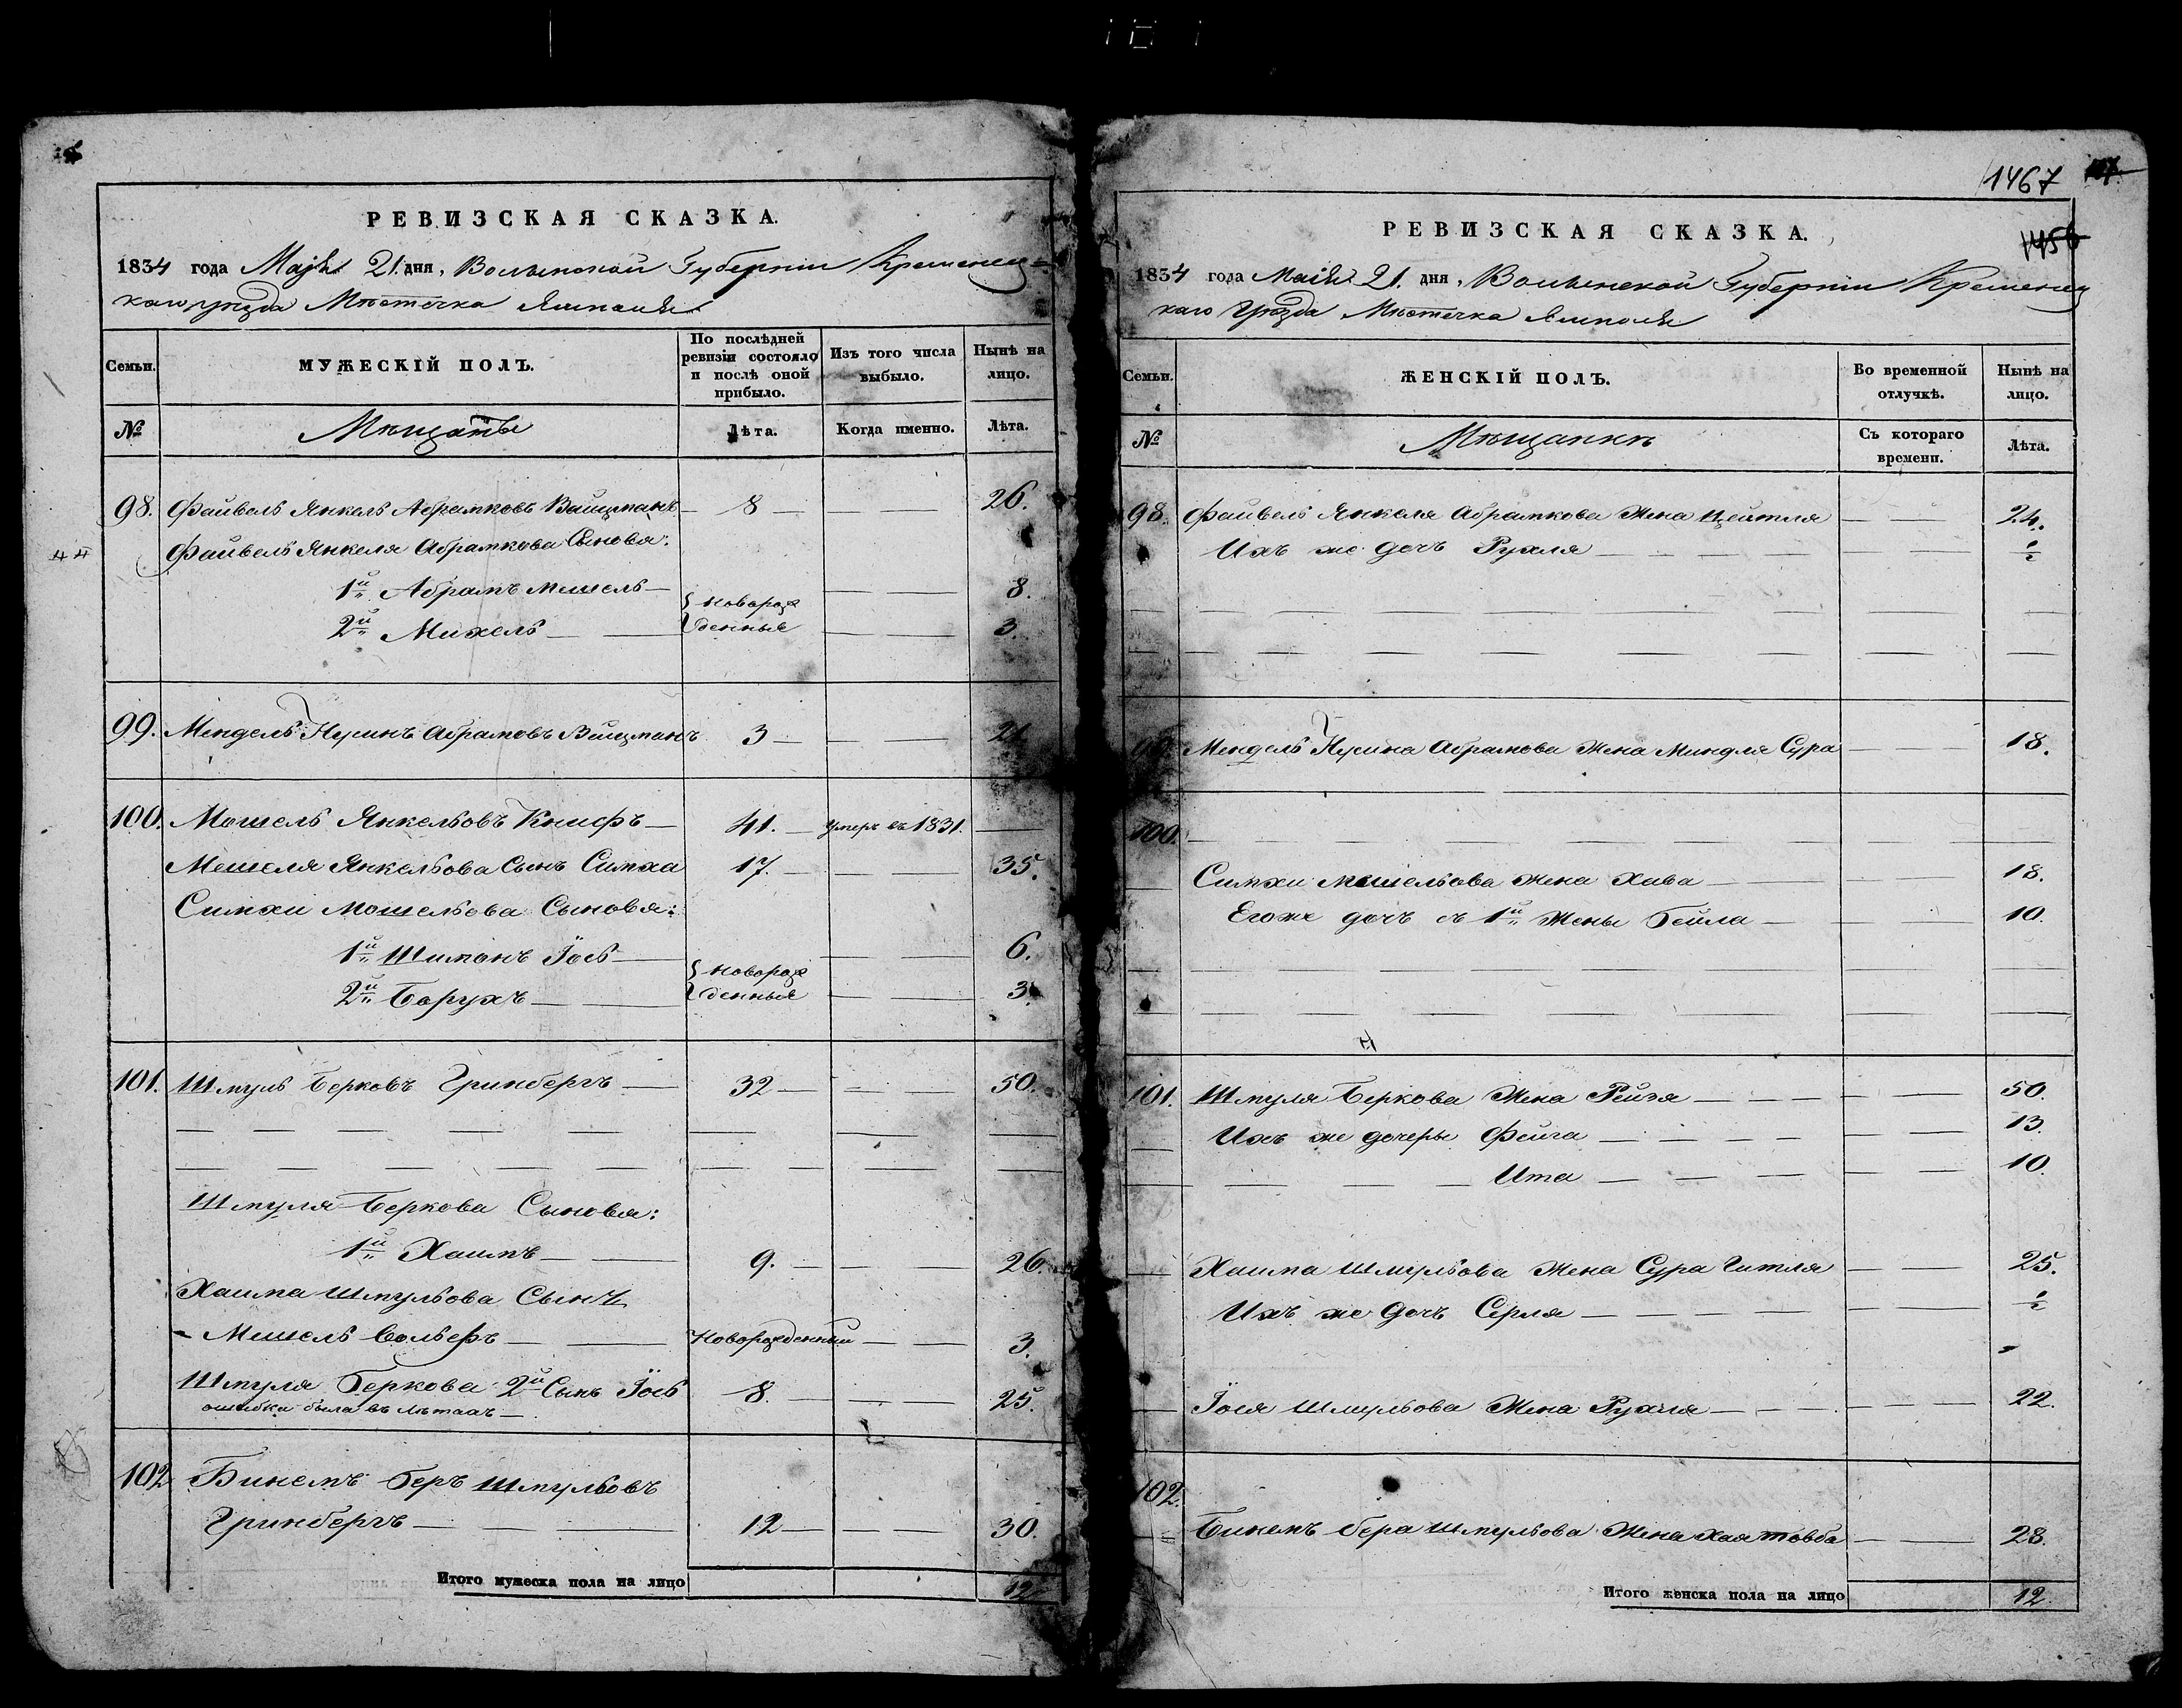 РЕВИЗСКАЯ СКАЗКА.
1834 года Маiя 21. дня, Волынской Губернiи Кременец-
каго уѣзда Мѣстечка Ямполя
Семьи.
МУЖЕСКІЙ ПОЛЪ.
По послѣдней ревизіи состояло и послѣ оной прибыло.
Изъ того числа выбыло.
Нынѣ на лицо.
№
Мѣщане
Лѣта.
Когда именно.
Лѣта.
98. Файвель Янкель Абрамковъ Вайцманъ 8 26.
Файвель Янкеля Абрамкова Сыновя:
1й Абрамъ Мешель 8.
новорож
2й Михель денные 3.
99. Мендель Нусинъ Абрамовъ Вайцманъ 3 21
100. Мошель Янкельовъ Книфъ 41. умеръ въ 1831.
Мешеля Янкельова Сынъ Симха 17. 35.
Симхи Мошельова Сыновя:
1й Шиманъ Іось 6.
новорож
2й Борухъ денные 3.
101. Шмуль Берковъ Гринбергъ 32 50.
Шмуля Беркова Сыновя:
1й Хаимъ 9. 26.
Хаима Шмульова Сынъ
Мешель Вольфъ Новорожденный 3.
Шмуля Беркова 2й Сынъ Іось 8. 25.
ошибка была въ лѣтахъ
102 Бинемъ Беръ Шмульовъ
Гринбергъ 12 30.
Итого мужеска пола на лицо 12
1467
1456
РЕВИЗСКАЯ СКАЗКА.
1834 года Маія 21. дня, Волынской Губерніи Кременец
каго Уѣзда Мѣстечка Ямполя
Семьи.
ЖЕНСКІЙ ПОЛЪ.
Во временной отлучкѣ.
Нынѣ на лицо.
№
Мѣщанки
Съ котораго времени.
Лѣта.
98. Файвель Янкеля Абрамкова Жена Цейтля 24.
Ихъ же дочь Рухля ½
99. Мендель Нусина Абрамова Жена Миндля Сура 18.
100.
Симхи Мошельова Жена Хава 18.
Егоже дочь съ 1й Жены Бейла 10.
101. Шмуля Беркова Жена Рейзя 50.
Ихъ же дочеры Фейга 13.
Ита 10.
Хаима Шмульова Жена Сура Гитля 25.
Ихъ же Дочь Серля ½
Іося Шмульова Жена Рухля 22.
102.
Бинемъ Бера Шмульова Жена Хая Товба 28.
Итого женска пола на лицо 12.